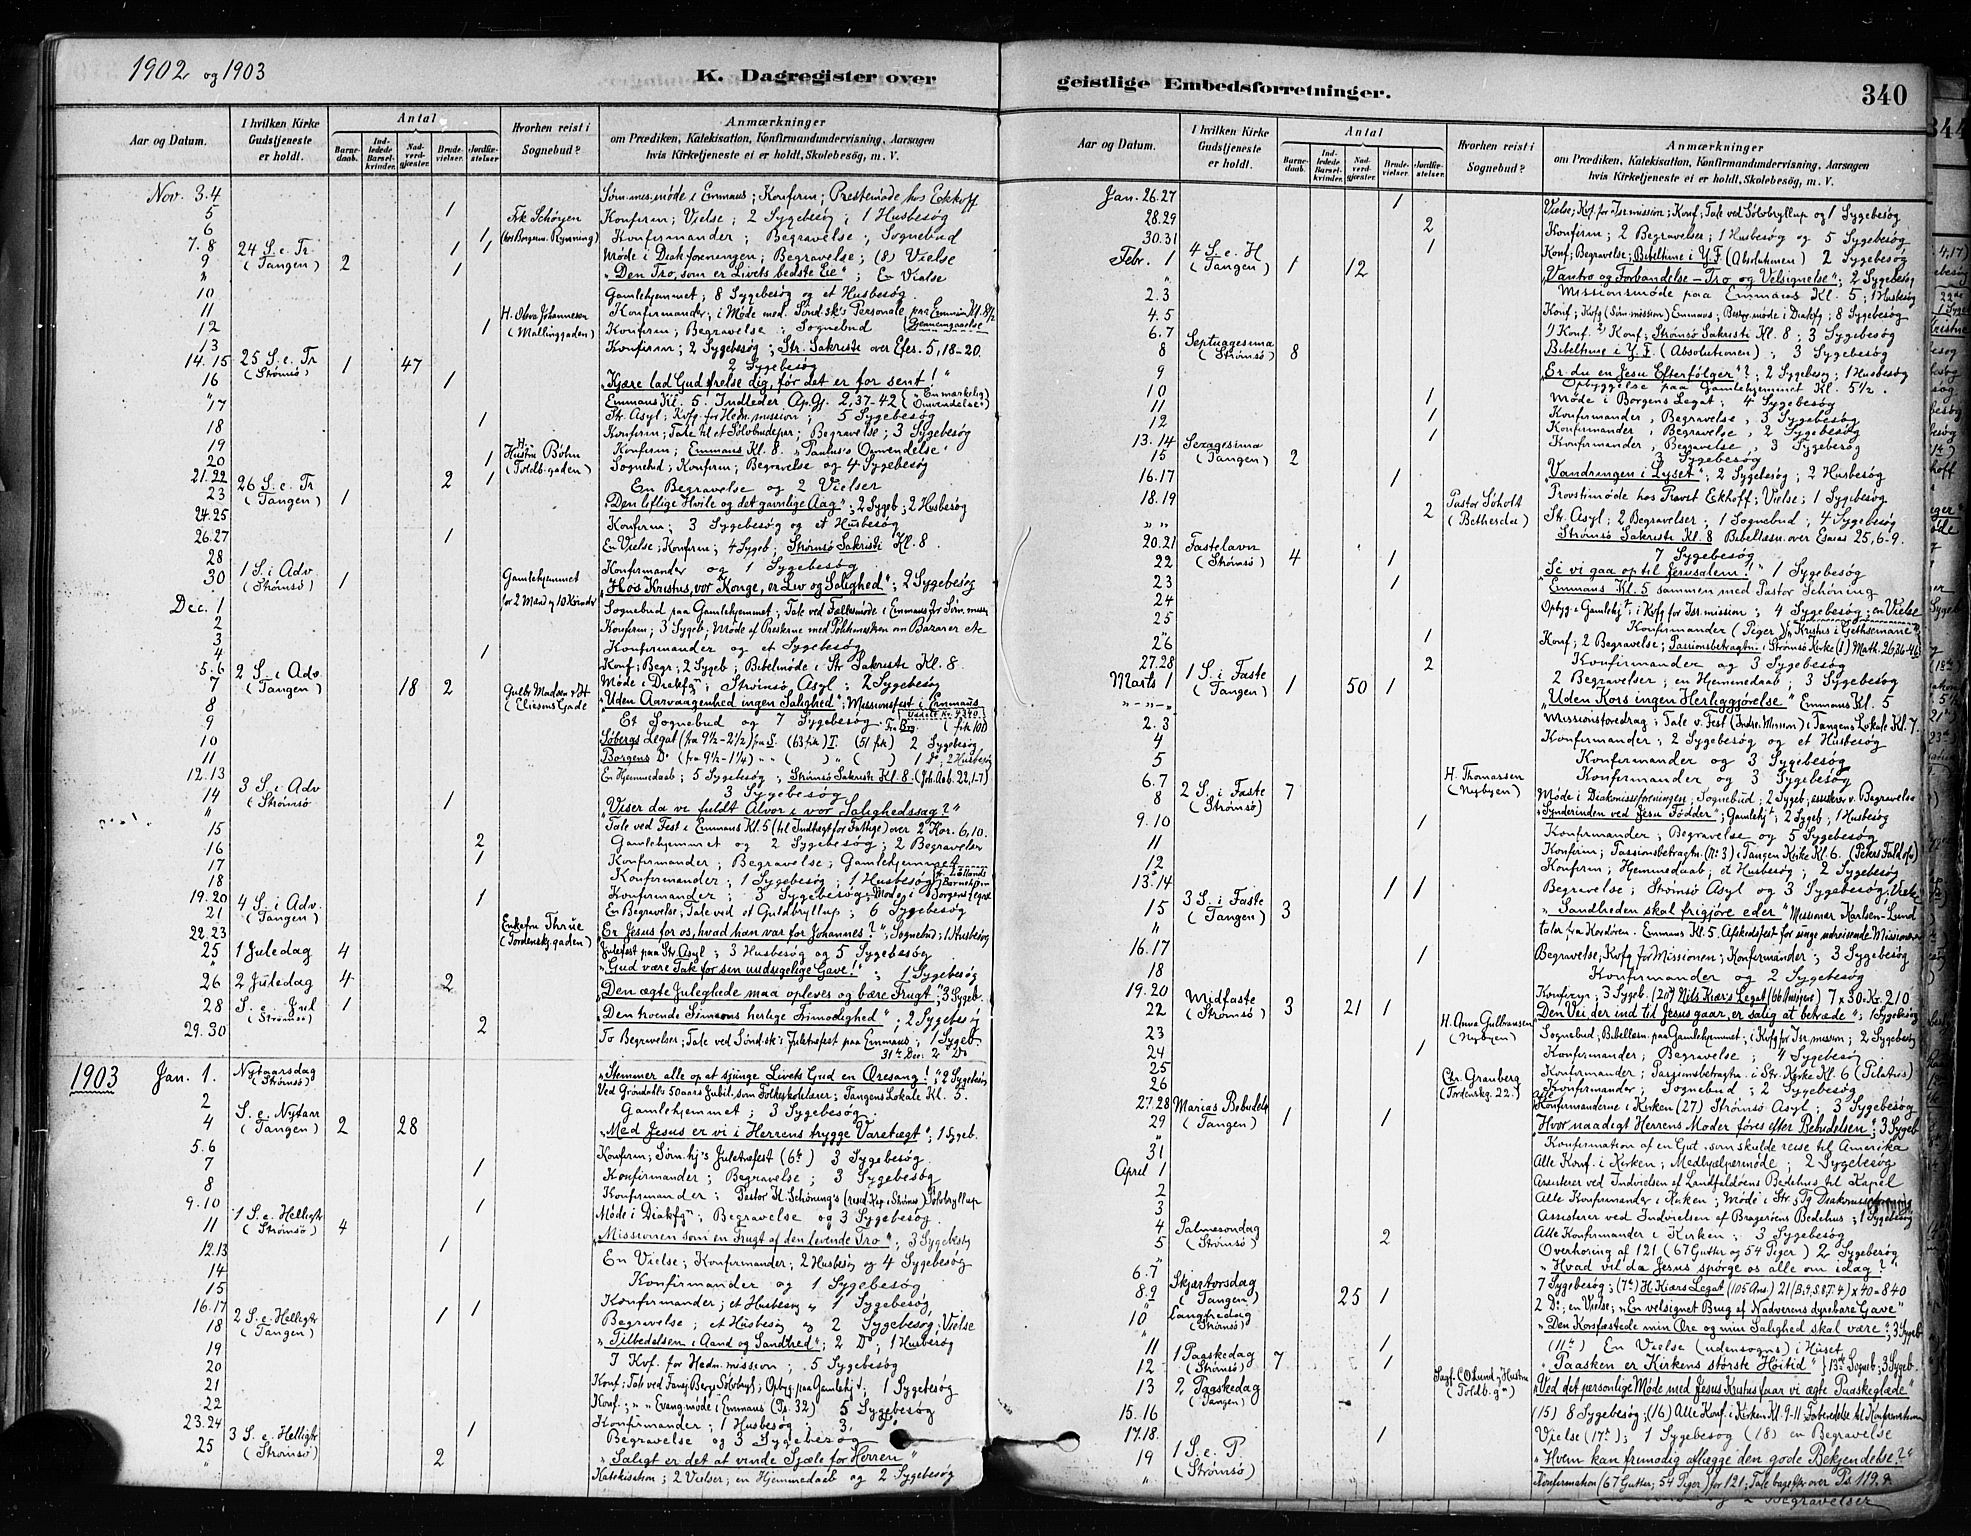 1902 og 1903
K. Dagregister over
geistlige Embedsforretninger.
340
Aar og Datum.
I hvilken Kirke Gudstjeneste er holdt.
Antal
Barnedaab.
Indledede Barselkvinder.
Nadverdgjester.
Brudevielser.
Jordfæstelser
Hvorhen reist i Sognebud?
Anmærkninger
om Prædiken, Katekisation, Konfirmandundervisning, Aarsagen
hvis Kirketjeneste ei er holdt, Skolebesøg, m. V.
Nov. 3.4 Søn.mes.møde i Emmaus; Konfirm; Prestemøde hos Eckhoff
5 1 Frk Schøyen Konfirm; Vielse; 2 Sygebesøg; 1 Husbesøg
6 1 Konfirmander; Begravelse; Sognebud
7.8 24 S. e. Tr 1 1 Møde i Diakforeningen; Begravelse; (8) Vielse
9 (Tangen) 2 1 "Den Tro, som er Livets bedste Eie"; En Vielse
10 Gamlehjemmet; 8 Sygebesøg og et Husbesøg
11 H. Olava Johannesen Konfirmander; i Møde med Sønd.sk's Personale
12 1 (Mallinggaden) Konfirm; Begravelse; Sognebud
13 Konfirm; 2 Sygebesøg; Str. Sakristi over Efes. 5, 18-20.
14.15 25 S. e. Tr 1 47 2 Sygebesøg
16 (Strømsø) 1 "Kjære lad Gud frelse dig, før det er for sent!"
" Emmaus Kl. 5 Indleder Ap.Gj. 2, 37-42
17 1 Str. Asyl; Kvfg. for Hedn. mission; 5 Sygebesøg
18 Konfirm; Tale til et Sølvbrudepar; Begravelse; 3 Sygebesøg
19 Hustru Böhn Konfirm; Emmaus Kl. 8. "Paulus's Omvendelse"
20 1 (Toldb.gaden) Sognebud; Konfirm; Begravelse og 4 Sygebesøg
21.22 26 S. e. Tr 2 1 En Begravelse og 2 Vielser
23 (Tangen) 1 "Den liflige Hvile og det gavnlige Aag"; 2 Sygeb; 2 Husbesøg
24.25 Konfirm; 3 Sygebesøg og et Husbesøg
26.27 1 En Vielse; Konfirm; 4 Sygeb; Strømsø Sakristi Kl. 8.
28 Konfirmander og 1 Sygebesøg
30 1 S. i Adv. (Strømsø) 1 Gamlehjemmet "Hos Kristus, vor Konge, er Liv og Salighed"; 2 Sygebesøg
Dec. 1 for 2 Mænd og 10 Kvinder Sognebud paa Gamlehjemmet; Tale ved Fællesmøde i Emmaus for Søn. miss.
2 Konfirm; 3 Sygeb; Møde af Presterne med Politimesteren om Bazarer etc
3 Konfirmander og et Sygebesøg
4 1 Konf; Begr; 2 Sygeb; Bibelmøde i Str Sakristi Kl. 8.
5.6 2 S. i Adv. Møde i Diakfgn; Strømsø Asyl; 2 Sygebesøg
7 (Tangen) 18 2 "Uden Aarvaagenhed ingen Salighed"; Missionsfest i Emmaus
8 Et Sognebud og 7 Sygebesøg
9 Søbergs Legat (fra 9½-2½)
10 Borgens Do (fra 9½-1¼)
11 En Hjemmedaab; 5 Sygebesøg; Strømsø Sakristi Kl. 8. (Joh. Aab. 22, 1-7)
12.13 3 S. i Adv 3 Sygebesøg
14 (Strømsø 1 "Viser da vi fuldt Alvor i vor Salighedssag?"
" Tale ved Fest i Emmaus Kl. 5 (til Indtægt for Fattige) over 2 Kor. 6, 10.
15 2 Gamlehjemmet og 2 Sygebesøg; 2 Begravelser
16 1 Konfirmander; Begravelse; Gamlehjemmet
17 Konfirmander; 1 Sygebesøg; 1 Husbesøg
18 1 Konfirmander; 3 Sygebesøg; Møde i Borgens Legat
19.20 4 S. i Adv. En Begravelse; Tale ved et Guldbryllup; 6 Sygebesøg
21 (Tangen) Enkefru Thrue "Er Jesus for os, hvad han var for Johannes?"; Sognebud; 1 Husbesøg
22.23 (Tordenskj.gaden) Julefest paa Str Asyl; 3 Husbesøg og 5 Sygebesøg
25 1 Juledag 4 "Gud være Tak for sin uudsigelige Gave!"; 1 Sygebesøg
26 2 Juledag 4 2 "Den ægte Juleglæde maa opleves og bære Frugt"; 3 Sygeb.
28 S. e. Jul (Strømsø) 1 "Den troende Simeons herlige Frimodighed"; 2 Sygebesøg
29.30 2 To Begravelser; Tale ved Sønd.sk's Juletræfest paa Emmaus; 1 Sygeb
31te Dec. 2 Do
1903 Jan. 1. Nytaarsdag (Strømsø) "Stemmer alle op at sjunge Livets Gud en Æresang!"; 2 Sygebesøg
2 Ved Grøndahls 50aars Jubil. som Folkeskolelærer; Tangens Lokale Kl. 5.
S. e. Nytaar Gamlehjemmet; 3 Sygebesøg
4 (Tangen) 2 28 "Med Jesus er vi i Herrens trygge Varetægt"; 1 Sygeb.
5.6 Konfirm; Søm.hj's Juletræfest (6te) 3 Sygebesøg
7 1 Konfirmander; Begravelse; 3 Sygebesøg
8 Konfirmander; Pastor H. Schøning's Sølvbryllup
9.10 1 S. e. Helligtr 1 Møde i Diakfgn; Begravelse og 3 Sygebesøg
11 (Strømsø) 4 "Missionen som en Frugt af den levende Tro"; 3 Sygebesøg
12.13 1 En Vielse; Konfirmander; 2 Husbesøg og 4 Sygebesøg
14 Konfirmander og 1 Sygebesøg
15 Konfirmander; et Husbesøg og 1 Sygebesøg
16.17 2 S. e. Helligtr 1 1 Begravelse; et Husbesøg og 2 Sygebesøg; Vielse
18 (Tangen) "Tilbedelsen i Aand og Sandhed"; 2 Do; 1 Husbesøg
19 I Kvf. for Hedn. mission; 5 Sygebesøg
20 Konf; Tale ved Sølvbryl; Opbyg. paa Gamlehjt; 1 Sygebesøg
21 Konf; " " Evang.møde i Emmaus (Ps. 32) 5 Sygebesøg
22 Konfirmander; 1 Husbesøg; 3 Do
23.24 3 S. e. Helligtr 1 Begravelse og 3 Sygebesøg
25 (Strømsø) "Saligt er det at vinde Sjæle for Herren"
" 2 Katekisation; 2 Vielser; en Hjemmedaab og 2 Sygebesøg
Aar og Datum.
I hvilken Kirke Gudstjeneste er holdt.
Antal
Barnedaab.
Indledede Barselkvinder.
Nadverdgjester.
Brudevielser.
Jordfæstelser.
Hvorhen reist i Sognebud?
Anmærkninger
om Prædiken, Katekisation, Konfirmandundervisning, Aarsagen
hvis Kirketjeneste ei er holdt, Skolebesøg, m. V.
Jan. 26.27 1 Vielse; Kvf. for Isr. mission; Konf; Tale ved Sølvbryllup og 1 Sygebesøg
28.29 2 Konfirm; 2 Begravelser; 1 Husbesøg og 5 Sygebesøg
30.31 1 Konf; Begravelse; Bibeltime i Y. F (Absolutionen) 2 Sygebesøg
Febr. 1 4 S. e. H (Tangen) 1 12 "Vantro og Forbandelse - Tro og Velsignelse"; 2 Sygebesøg
" Missionsmøde paa Emmaus Kl. 5; 1 Husbesøg
2.3 Konf; Kvfg (Søn. mission) Emmaus; Best. møde i Diakfg; 8 Sygebesøg
4.5 1) Konf 2) Konf; Strømsø Sakristi Kl. 8; 3 Sygebesøg
6.7 Septuagesima Bibeltime i Y. F. (Absolutionen); 3 Sygebesøg
8 (Strømsø) 8 "Er du en Jesu Efterfølger"?; 2 Sygebesøg; 1 Husbesøg
9 Opbyggelse paa Gamlehjemmet Kl. 5½.
10 1 Møde i Borgens Legat; 4 Sygebesøg
11 1 Konfirmander; Begravelse; 3 Sygebesøg
12 Konfirmander; Begravelse; 2 Sygebesøg
13.14 Sexagesima 1 Konfirmander; Begravelse; 3 Sygebesøg
3 Sygebesøg
15 (Tangen) 2 "Vandringen i Lyset"; 2 Sygebesøg; 2 Husbesøg
16.17 1 Provstimøde hos Provst Eckhoff; Vielse; 1 Sygebesøg
18.19 2 Pastor Søholt (Bethesda) Str. Asyl; 2 Begravelser; 1 Sognebud; 4 Sygebesøg
" " Strømsø Sakristi Kl 8 Bibellæsn. over Esaias 25, 6-9.
20.21 Fastelavn 1 7 Sygebesøg
22 (Strømsø) 4 "Se vi gaa op til Jerusalem!" 1 Sygebesøg
23 1 Emmaus Kl. 5 sammen med Pastor Schöning
24 Opbyg. i Gamlehjt; i Kvfg for Isr. mission; 4 Sygebesøg; en Vielse
25 Konfirmander (Piger) "Kristus i Gethsemane"
26 1 Konf; 2 Begravelse; Passionsbetragtn. i Strømsø Kirke (1) Math. 26, 36-46
Konfirmander og 3 Sygebesøg
27.28 1 S. i Faste 2 2 Begravelser; en Hjemmedaab; 3 Sygebesøg
Marts 1 (Tangen) 1 50 1 "Uden Kors ingen Herliggjørelse" Emmaus Kl. 5
" - " - " Missionsforedrag; Tale v. Fest (Indre Mission) i Tangens Lokale Kl. 7.
2.3 Konfirmander; 2 Sygebesøg og et Husbesøg
4 Konfirmander og 3 Sygebesøg
5 Konfirmander og 3 Sygebesøg
6.7 H. Thomassen (Nybyen) Møde i Diakonissforeningen; Sognebud; 2 Sygeb; assisterer v. Begravelse
8 2 S. i Faste (Strømsø) 7 "Synderinden ved Jesu Fødder"; Gamlehjt; 2 Sygeb; 1 Husbesøg
9.10 1 Konfirmander; Begravelse og 5 Sygebesøg
11 Konfirm; Passionsbetragtn. (No 3) i Tangen Kirke Kl. 6. (Peters Fald ofv.)
12 Konfirm; Hjemmedaab; et Husbesøg; 2 Sygebesøg
13.14 1 1 Begravelse; Strømsø Asyl og 3 Sygebesøg; Vielse
15 3 S. i Faste (Tangen) 3 "Sandheden skal frigjøre eder" Missionær Karlsen-Lund
" taler fra Kordøren. Emmaus Kl. 5. Afskedsfest for unge udreisende Missionærer
16.17 1 Begravelse; Kvfg for Missionen; Konfirmander; 3 Sygebesøg
18 Konfirmander og 2 Sygebesøg
19.20 Midfaste Konfirm; 3 Sygeb. (20de) Nils Kiær's Legat (66 Ansøgere) 7 x 30 = Kr. 210
22 (Strømsø) 3 21 1 "Den Vei der ind til Jesus gaar, er salig at betræde"; 1 Sygebesøg
23 H. Anna Gulbransen (Nybyen) Sognebud; Bibellæsn. paa Gamlehjemmet; i Kvfg for Isr. mission; 2 Sygebesøg
24 1 Konfirmander; Begravelse; 4 Sygebesøg
25 Konfirmander; Passionsbetragtn. i Str. Kirke Kl. 6 (Pilatus)
26 Chr. Granberg (Tordenskg. 22.) Konfirmander; Sognebud; 2 Sygebesøg
27.28 Marias Bebudels Alle Konfirmanderne i Kirken (27) Strømsø Asyl; 3 Sygebesøg
29 (Tangen) 1 1 "Hvor naadigt Herrens Moder føres efter Bebudelsen"; 3 Sygeb
" Konfirmation af en Gut, som skulde reise til Amerika
31 Alle Konf. i Kirken; Medhjælpermøde; 2 Sygebesøg
April 1 Assisterer ved Indvielsen af Landfaldøens Bedehus til Kapel
2 Alle Konfirmander i Kirken; Møde i Str. Tg Diakonisseforening
3 Assisterer ved Indvielsen af Bragerøens Bedehus; 1 Sygebesøg
4 Palmesøndag Alle Konfirmander i Kirken; 3 Sygebesøg
5 (Strømsø) 2 Overhøring af 121 (67 Gutter og 54 Piger) 2 Sygebesøg
" "Hvad vil da Jesus spørge os alle om idag?"
6.7 Skjærtorsdag 7 Sygebesøg; (7de) H. Kiærs Legat (105 Ans)
8.9 (Tangen) 25 1 2 Do; en Vielse; "En velsignet Brug af Nadverens dyrebare Gave"
10 Langfredag (Strømsø) "Den Korsfæstede min Ære og min Salighed skal være"; 3 Sygeb
11 1 (11te) En Vielse (udensogns) i Huset
12 1 Paaskedag (Strømsø) 7 1 "Paasken er Kirkens største Høitid" 13de Sogneb; 3 Sygeb.
13 2 Paaskedag (Tangen) (Toldb. gn) "Ved det personlige Møde med Jesus Kristus faar vi ægte Paaskeglæde"
15.16 (15) 8 Sygebesøg; (16) Alle Konf. i Kirken Kl. 9-11 Forberedelse til Konfirmationen
17.18. 1 Vielse (17de); 1 Sygebesøg (18) en Begravelse
19 1 S. e. P (Strømsø) "Hvem kan frimodig aflægge den gode Bekjendelse?"
" Konfirmation (67 Gutter, 54 Piger) for 121; Tale bagefter over Ps. 119, 9
2 Begravelser